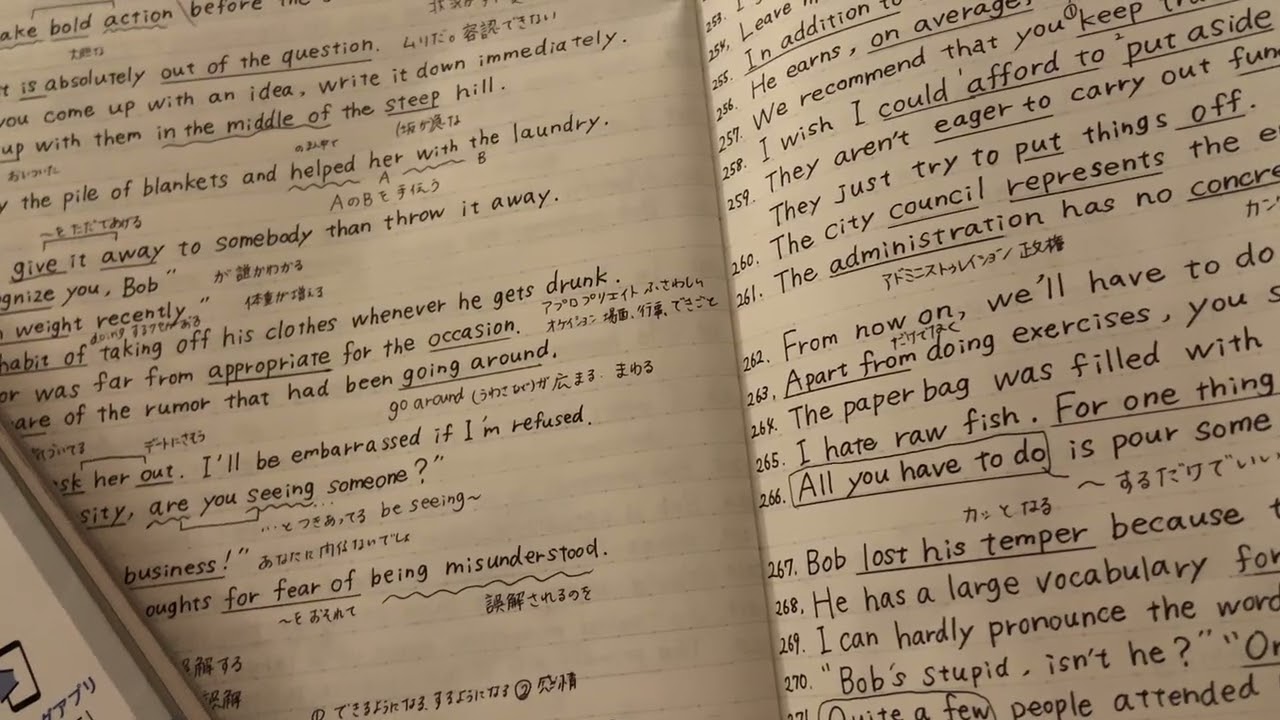 ake bold action before the
大胆な
ムリだ。容認できない
t is absolutely out of the question.
you come up with an idea, write it down immediately.
up with them in the middle of the steep hill.
おいついた
のみ中で
y the pile of blankets and helped her with the laundry.
A B
AのBを手伝う
〜をただであげる
give it away to somebody than throw it away.
gnize you, Bob"
が誰かわかる
n weight recently."
体重が増える
habit of taking off his clothes whenever he gets drunk.
アプロプリエイト ふさわしい
or was far from appropriate for the occasion.
オケイション 場面、行事、できごと
are of the rumor that had been going around.
go around (うわさなど)が広まる まわる
気づいてる
デートにさそう
sk her out. I'll be embarrassed if I'm refused.
sity, are you seeing someone?"
…とつきあってる be seeing~
business!"
あなたに関係ないでしょ
oughts for fear of being misunderstood.
〜をおそれて
誤解されるのを
解する
誤解
① できるようになる、するようになる ② 感情
グアプリ
253. I
254. Leave
255. In addition to
256. He earns, on average,
257. We recommend that you ① keep
258. I wish I could afford to ² put aside
259. They aren't eager to carry out fun
They just try to put things off.
260. The city council represents the e
261. The administration has no concre
アドミニストゥレイション 政権
カン
262. From now on, we'll have to do
だけでなく
263. Apart from doing exercises, you s
264. The paper bag was filled with
265. I hate raw fish. For one thing
266. All you have to do is pour some
〜するだけでいい
カッとなる
267. Bob lost his temper because t
268. He has a large vocabulary for
269. I can hardly pronounce the word
270. "Bob's stupid, isn't he?" "On
271. Quite a few people attended